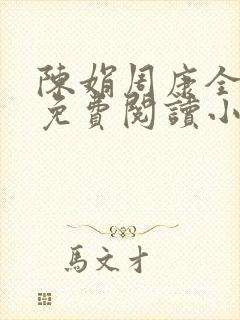 陳娟周康全
免費閱讀小
馬文才